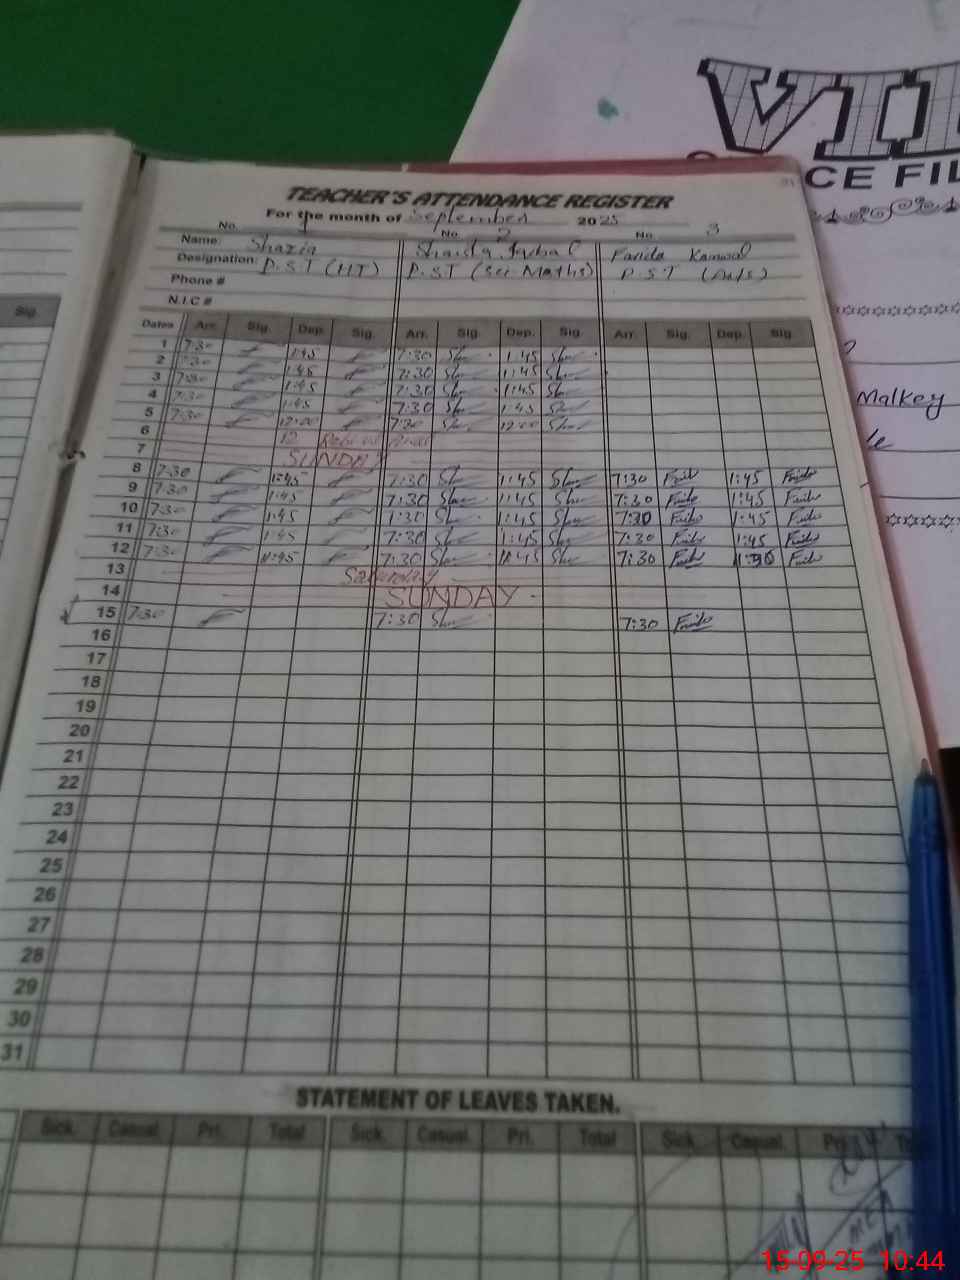 TEACHER'S ATTENDANCE REGISTER
For the month of September 2025
No. 1 No. 2 No. 3
Name: Shazia Shaista Iqbal Farida Kanwal
Designation: P.S.T (HT) P.S.T (Sci Maths) P.S.T (Arts)
Phone #
N.I.C #
Dates Arr. Sig. Dep. Sig. Arr. Sig. Dep. Sig. Arr. Sig. Dep. Sig.
1 7:30 1:45 7:30 1:45
2 7:30 1:45 7:30 1:45
3 7:30 1:45 7:30 1:45
4 7:30 1:45 7:30 1:45
5 7:30 12:00 7:30 12:00
6 12 Rabi
7 SUNDAY
8 7:30 1:45 7:30 1:45 7:30 1:45
9 7:30 1:45 7:30 1:45 7:30 1:45
10 7:30 1:45 7:30 1:45 7:30 1:45
11 7:30 1:45 7:30 1:45 7:30 1:45
12 7:30 11:45 7:30 11:45 7:30
13 Saturday
14 SUNDAY
15 7:30 7:30 7:30
16
17
18
19
20
21
22
23
24
25
26
27
28
29
30
31
STATEMENT OF LEAVES TAKEN.
Sick. Casual. Pri. Total Sick. Casual. Pri. Total Sick. Casual. Pri.
Sig.
VI
CE FIL
Malkey
15-09-25 10:44